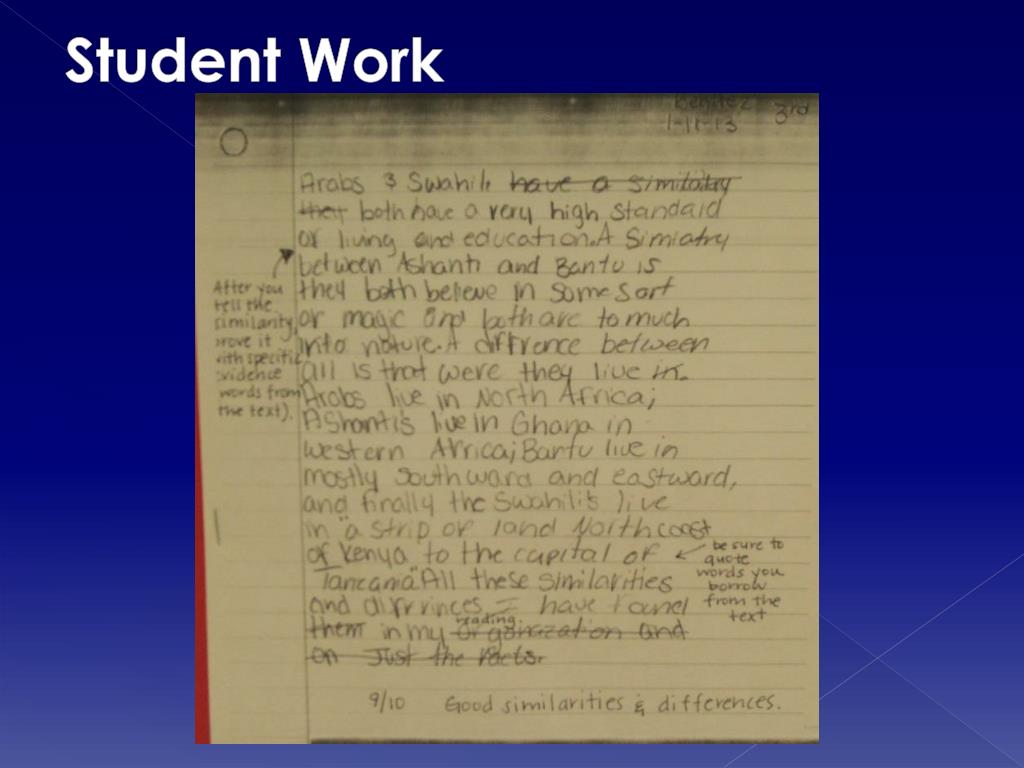 Student Work
Benitez 3rd
1-11-13
Arabs & Swahili have a similatey
they both have a very high standard
of living and education. A Simiatry
between Ashanti and Bantu is
they both believe in some sort
of magic and both are to much
into nature. A diffrence between
all is that were they live in.
Arabs live in North Africa;
AShanti's live in Ghana in
western Africa; Bantu live in
mostly Southward and eastward,
and finally the Swahili's live
in "a strip of land North coast
of Kenya to the capital of
Tanzania." All these similarities
and diffrinces I have found
reading.
them in my organazation and
on Just the facts.
After you
tell the
similarity,
prove it
with specific
evidence
words from
the text).
be sure to
quote
words you
borrow
from the
text
9/10 Good similarities & differences.